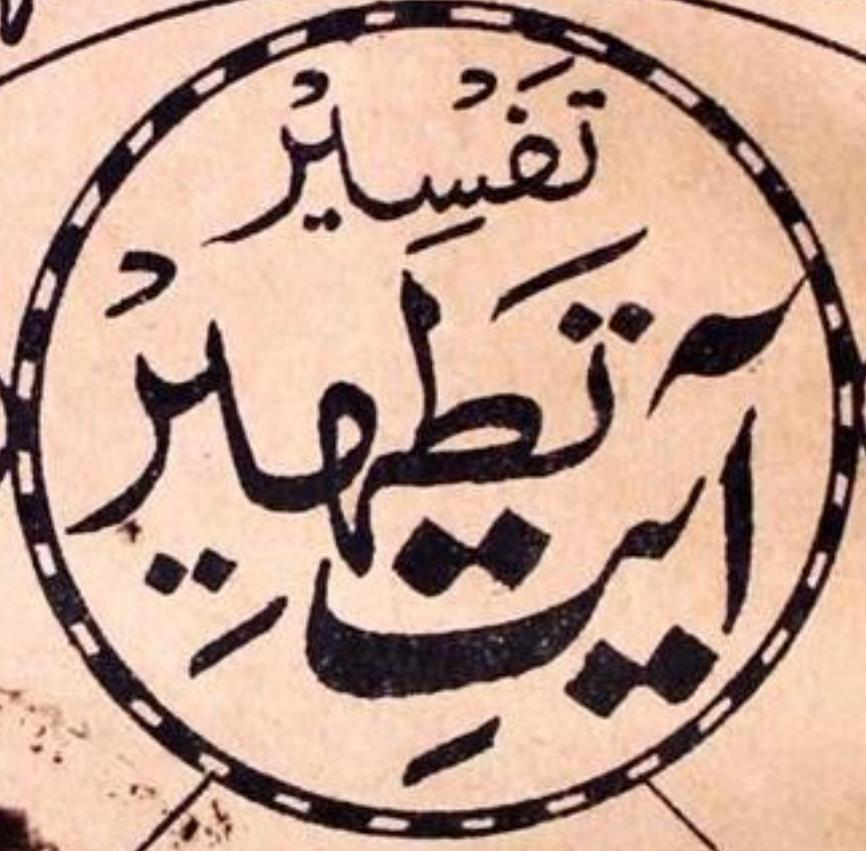 تَفْسِیْر
آیتِ تَطْہِیْر